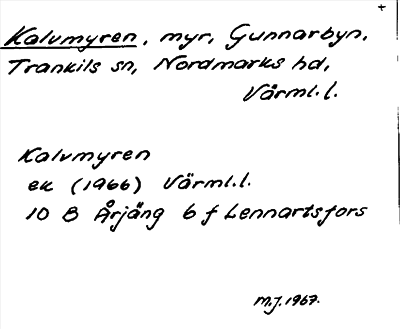 Kalvmyren, myr, Gunnarbyn,
Trankils sn, Nordmarks hd,
Värml. l.
Kalvmyren
ek (1966) Värml. l.
10 B Årjäng 6 f Lennartsfors
M.J. 1967.